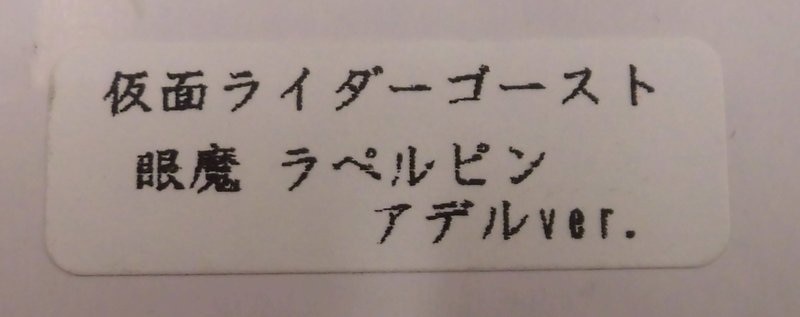 仮面ライダーゴースト
眼魔 ラペルピン
アデルver.